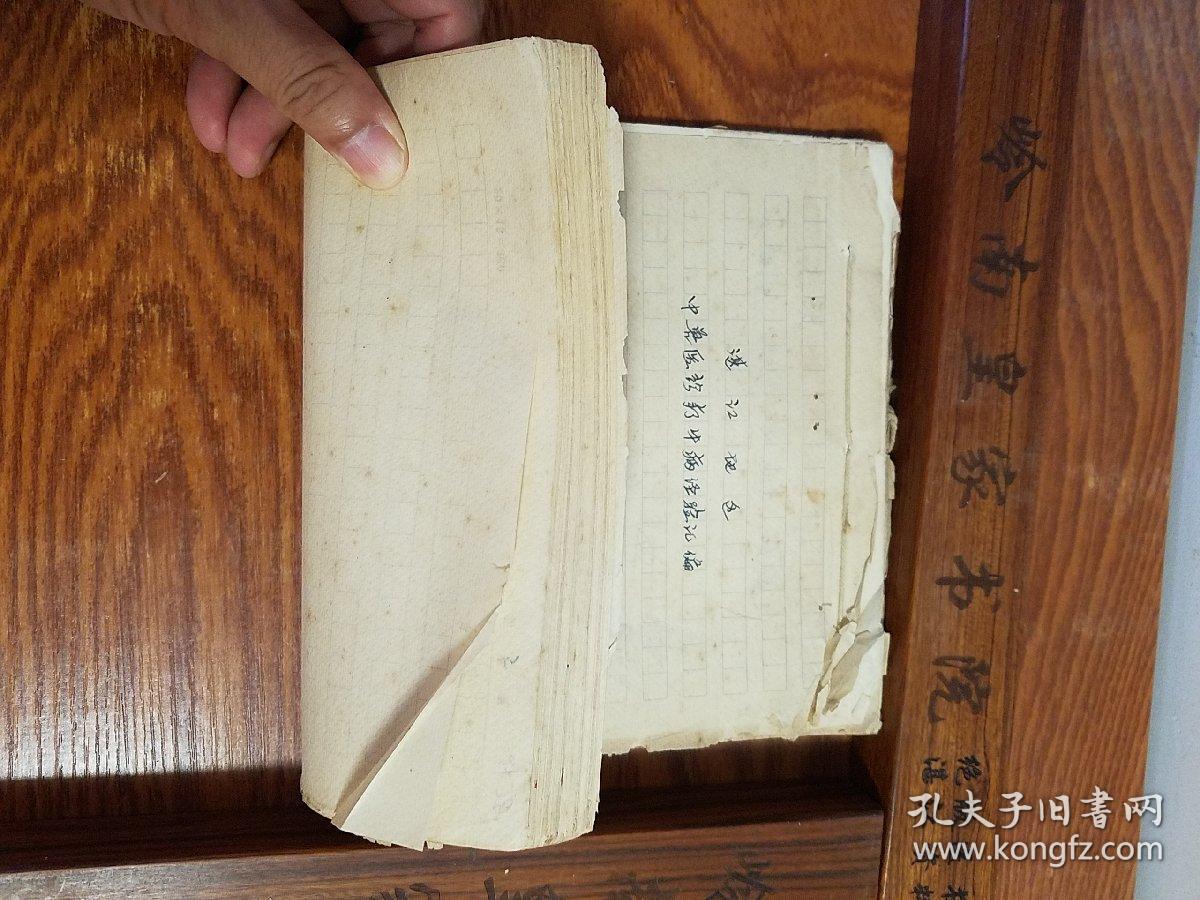 湛江地区
中兽医诊疗牛病经验汇编
岺南皇家书院
孔夫子旧书网
www.kongfz.com